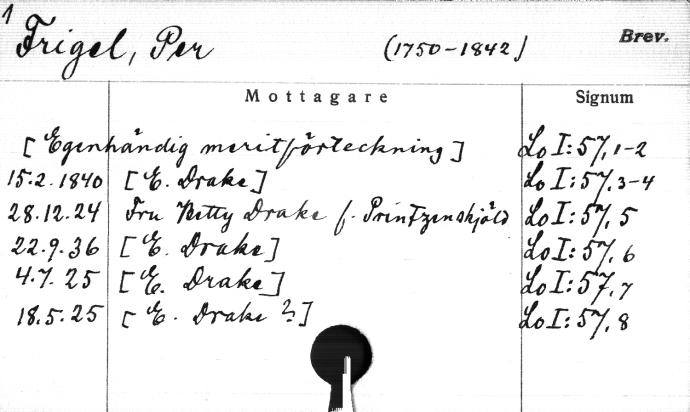 1
Frigel, Per (1750-1842) Brev.
Mottagare Signum
[Egenhändig meritförteckning] Lo I:57, 1-2
15.2.1840 [E. Drake] Lo I:57, 3-4
28.12.24 Fru Betty Drake f. Printzenskjöld Lo I:57, 5
22.9.36 [E. Drake] Lo I:57, 6
4.7.25 [E. Drake] Lo I:57, 7
18.5.25 [E. Drake ?] Lo I:57, 8